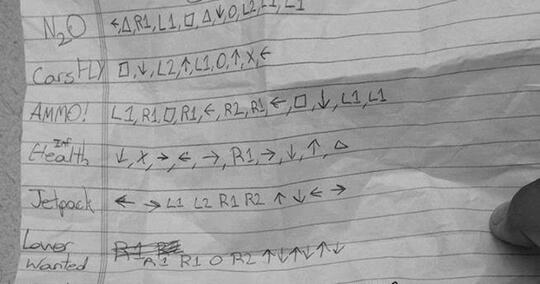 N2O ←,△,R1,L1,□,△,↓,O,L2,L1,L1
Cars FLY □,↓,L2,↑,L1,O,↑,X,←
AMMO! L1,R1,□,R1,←,R2,R1,←,□,↓,L1,L1
Inf Health ↓,X,→,←,→,R1,→,↓,↑,△
Jetpack ← → L1 L2 R1 R2 ↑ ↓ ← →
Lower
Wanted R1 R1 O R2 ↑ ↓ ↑ ↓ ↑ ↓